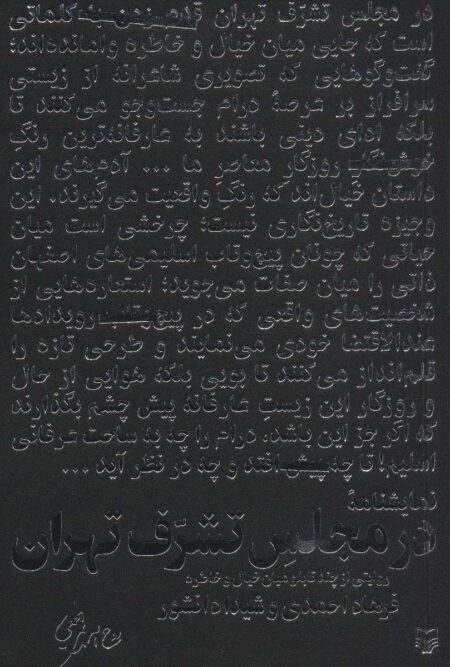 در مجلس تشرّف تهران کلماتی
است که جایی میان خیال و خاطره وامانده‌اند؛
گفت‌وگوهایی که تصویری شاعرانه از زیستی
سرافراز بر عرصهٔ درام جست‌وجو می‌کنند تا
بلکه ادای دینی باشند به عارفانه‌ترین رنگ
روزگار معاصر ما ... آدم‌های این
داستان خیال‌اند که رنگ واقعیت می‌گیرند. این
وجیزه تاریخ‌نگاری نیست؛ چرخشی است میان
حیاتی که چونان پیچ‌وتاب اسلیمی‌های اصفهان
ذاتی را میان صفات می‌جوید؛ استعاره‌هایی از
شخصیت‌های واقعی که در رویدادها
عندالاقتضا خودی می‌نمایند و طرحی تازه را
قلم‌انداز می‌کنند تا بویی بلکه هوایی از حال
و روزگار این زیست عارفانه پیش چشم بگذارند
که اگر جز این باشد، درام را چه به ساحت عرفانی
اسلیم! تا چه افتد و چه در نظر آید ...
نمایشنامهٔ
در مجلسِ تشرّف تهران
روایتی از چند تابلو میان خیال و خاطره
فرهاد احمدی و شیدا دانشور